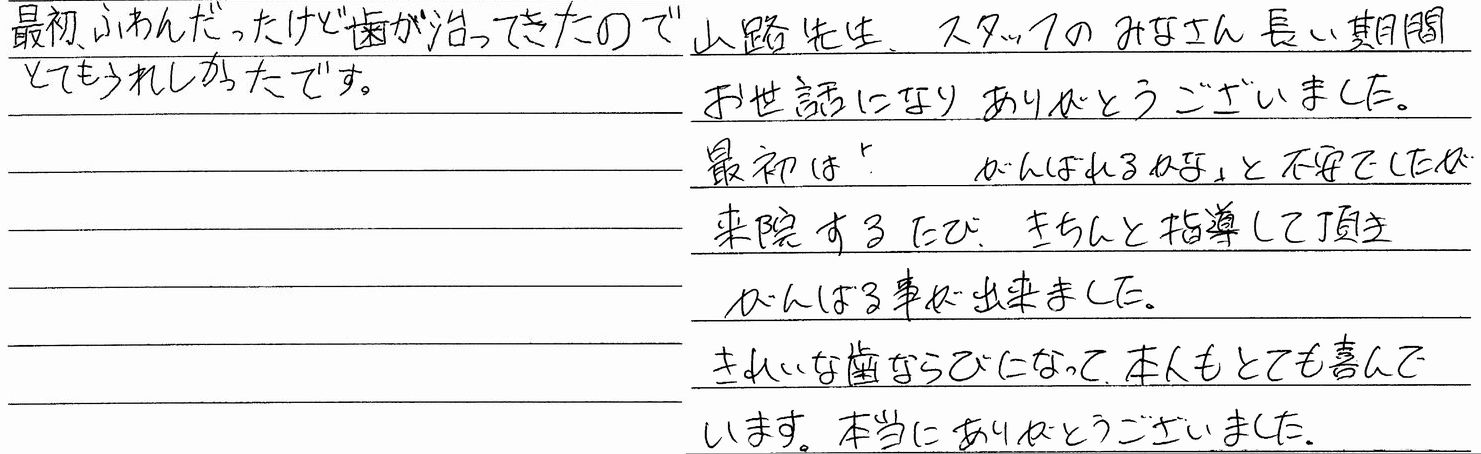 最初、ふわんだったけど歯が治ってきたので
とてもうれしかったです。
山路先生、スタッフのみなさん長い期間
お世話になりありがとうございました。
最初は「　　　がんばれるかな」と不安でしたが
来院するたび、きちんと指導して頂き
がんばる事が出来ました。
きれいな歯ならびになって、本人もとても喜んで
います。本当にありがとうございました。